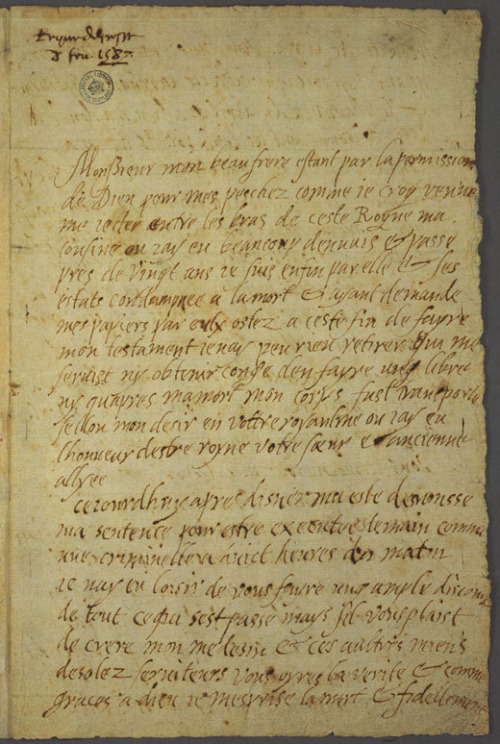 8 feu 1587
Monssieur mon beau frere estant par la permission
de Dieu pour mes peschez comme ie croy venue
me iecter entre les bras de ceste Royne ma
cousine ou iay eu beaucoup dennuis & passe
pres de vingt ans ie suis enfin par elle & ses
estats condampnee a la mort & ayant demande
mes papiers par eulx ostez a ceste fin de fayre
mon testament ie nay peu rien retirer qui me
seruist ny obtenir conge den fayre ung libre
ny quapres ma mort mon corps fust transporte
sellon mon desir en vottre royaulme ou iay eu
lhonneur destre royne votre sœur & ancienne
allyee
ceiourdhuy apres disner ma este desnonsse
ma sentence pour estre executee demain comme
une criminelle a huict heures du matin
ie nay eu loisir de vous fayre ung ample discours
de tout ce qui sest passe mays sil vous plaist
de crere mon medesin & ces aultres miens
desolez seruiteurs vous oyres la verite & comme
graces a dieu ie mesprise la mort & fidellement